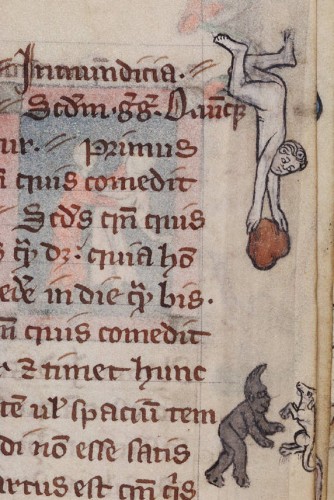 Inmundicia.
Scdm. gg. Quincꝫ
ur. primus
quis comedit
Scds qn quis
qr dꝫ: quia ho
in die qr bis.
quis comedit
⁊ timet hunc
ul' spaciū tem
di nō esse satis
artus est cm qis